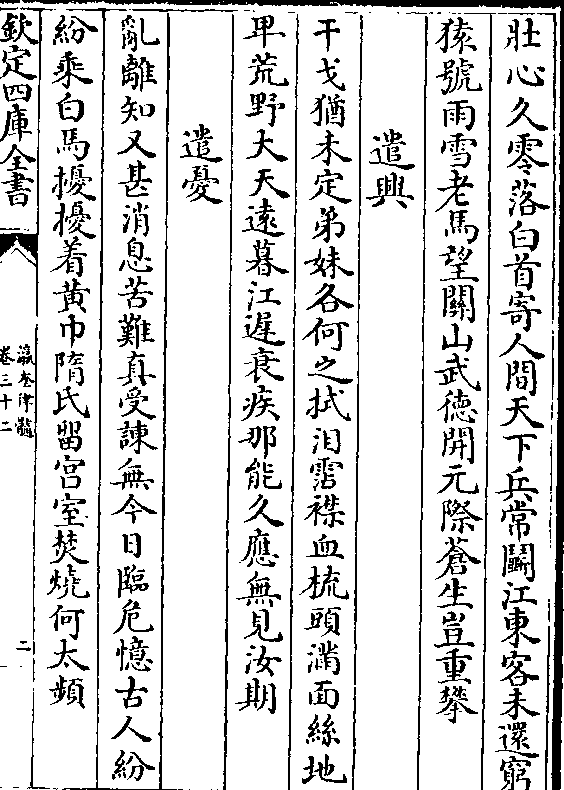 壯心久零落白首寄人間天下兵常鬭江東客未還窮
猿號雨雪老馬望關山武德開元際蒼生豈重攀
遣興
干戈猶未定弟妹各何之拭淚霑襟血梳頭滿面絲地
卑荒野大天遠暮江遲衰疾那能久應無見汝期
遣憂
亂離知又甚消息苦難真受諫無今日臨危憶古人紛
紛乘白馬擾擾着黃巾隋氏留宫室焚燒何太頻
欽定四庫全書
瀛奎律髓
卷三十二
二